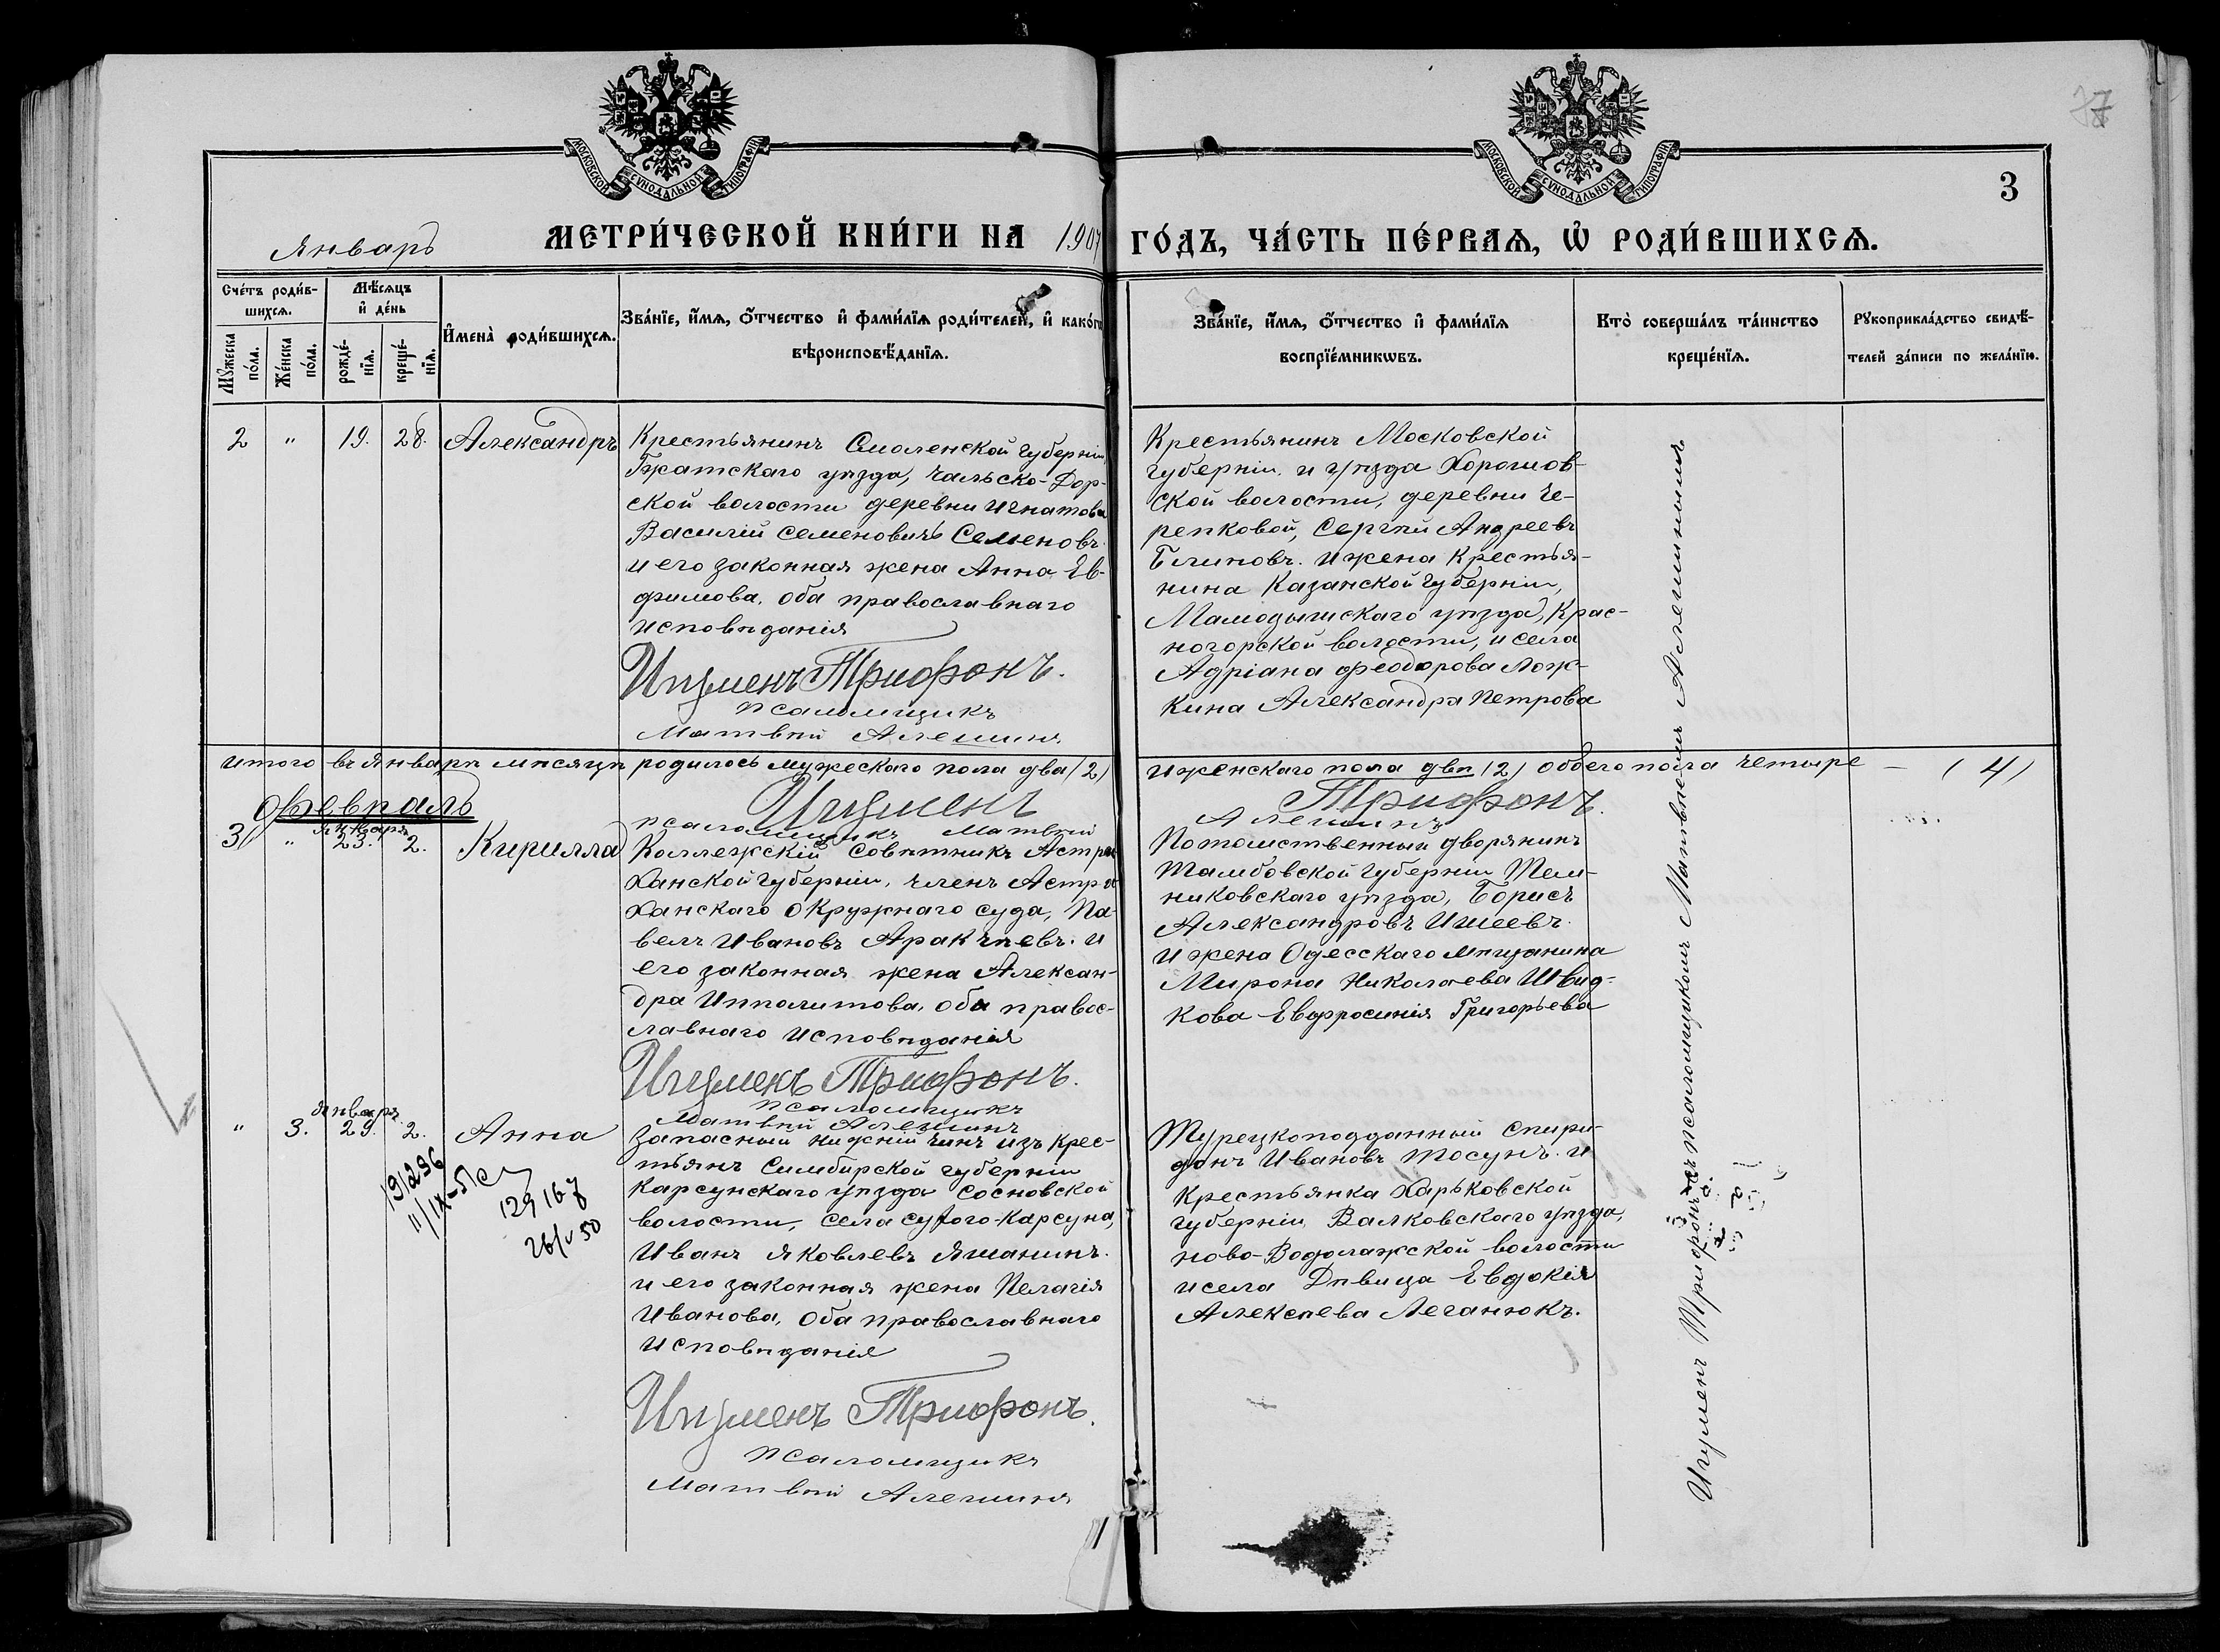 МОСКОВСКОЙ СѴНОДАЛЬНОЙ ТИПОГРАФІИ
МОСКОВСКОЙ СѴНОДАЛЬНОЙ ТИПОГРАФІИ
3
Январь
МЕТРИ́ЧЕСКОЙ КНИ́ГИ НА 1907
ГО́ДЪ, ЧА́СТЬ ПЕ́РВАѦ, Ѡ РОДИ́ВШИХСѦ.
Сче́тъ роди́в-
шихсѧ.
Мѣ́сѧцъ
и҆ де́нь
Мꙋ́жеска по́ла.
Же́нска по́ла.
рожде́-
нїѧ.
креще́-
нїѧ.
И҆мена̀ роди́вшихсѧ.
Зва́нїе, и҆́мѧ, ѻ҆́тчество и҆ фами́лїѧ роди́телей, и҆ како́гѡ
вѣроисповѣ́данїѧ.
Зва́нїе, и҆́мѧ, ѻ҆́тчество и҆ фами́лїѧ
воспрїе́мникѡвъ.
Кто̀ соверша́лъ та́инство
креще́нїѧ.
Рꙋкоприкла́дство свидѣ́-
телей за́писи по жела́нїю.
2 " 19. 28. Александръ
Крестьянинъ Смоленской губерніи
Гжатскаго уѣзда, Чальско-Дор-
ской волости деревни Игнатова
Василій Семеновичъ Семеновъ
и его законная жена Анна Ев-
фимова, оба православнаго
исповѣданія
Игуменъ Трифонъ.
псаломщикъ
Матвѣй Алешинъ
Крестьянинъ Московской
губерніи и уѣзда Хорошов-
ской волости, деревни Че-
репковой, Сергѣй Андреевъ
Блиновъ. и жена крестья-
нина Казанской губерніи,
Мамодышскаго уѣзда, Крас-
ногорской волости, и села
Адріана Феодорова Лож-
кина Александра Петрова
Итого въ Январѣ мѣсяцѣ родилось мужескаго пола два (2)
и женскаго пола двѣ (2) обоего пола четыре — (4)
Февраль
Игуменъ Трифонъ.
псаломщикъ Матвѣй Алешинъ
3 " Января 23. 2. Кирилла
Коллежскій Совѣтникъ Астра-
ханской губерніи, членъ Астра-
ханскаго Окружнаго суда, Па-
велъ Ивановъ Аракчѣевъ. и
его законная жена Алексан-
дра Ипполитова, оба правос-
лавнаго исповѣданія
Игуменъ Трифонъ.
псаломщикъ
Матвѣй Алешинъ
Потомственный дворянинъ
Тамбовской губерніи Тем-
никовскаго уѣзда, Борисъ
Александровъ Ишеевъ.
и жена Одесскаго мѣщанина
Мирона Николаева Швид-
кова Евфросинія Григорьева
" 3. Января 29. 2. Анна
19/296
129167
26/V 50
Запасный нижній чинъ изъ крес-
тьянъ Симбирской губерніи
Карсунскаго уѣзда Сосновской
волости, села Сухого-Карсуна,
Иванъ Яковлевъ Яшанинъ.
и его законная жена Пелагія
Иванова, оба православнаго
исповѣданія
Игуменъ Трифонъ.
псаломщикъ
Матвѣй Алешинъ
Турецкоподданный Спири-
донъ Ивановъ Тосунъ. и
крестьянка Харьковской
губерніи Валковскаго уѣзда,
ново-Водолажской волости
и села Дѣвица Евдокія
Алексѣева Леганюкъ.
Игуменъ Трифонъ съ псаломщикомъ Матвѣемъ Алешинымъ